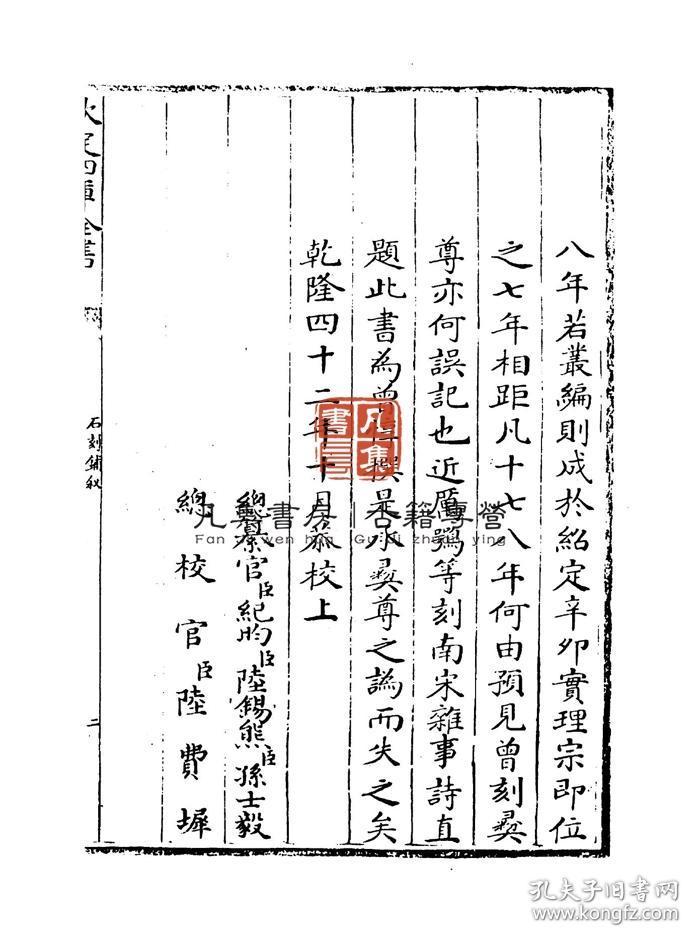 八年若叢編則成於紹定辛卯實理宗即位
之七年相距凡十七八年何由預見曾刻彝
尊亦何誤記也近厲鶚等刻南宋雜事詩直
題此書為曾 撰是承彝尊之譌而失之矣
乾隆四十二年十月恭校上
總纂官臣紀昀臣陸錫熊臣孫士毅
總校官臣陸費墀
欽定四庫全書
石刻鋪叙
二
凡集書房 古籍專營
凡集書房
孔夫子旧书网
www.kongfz.com